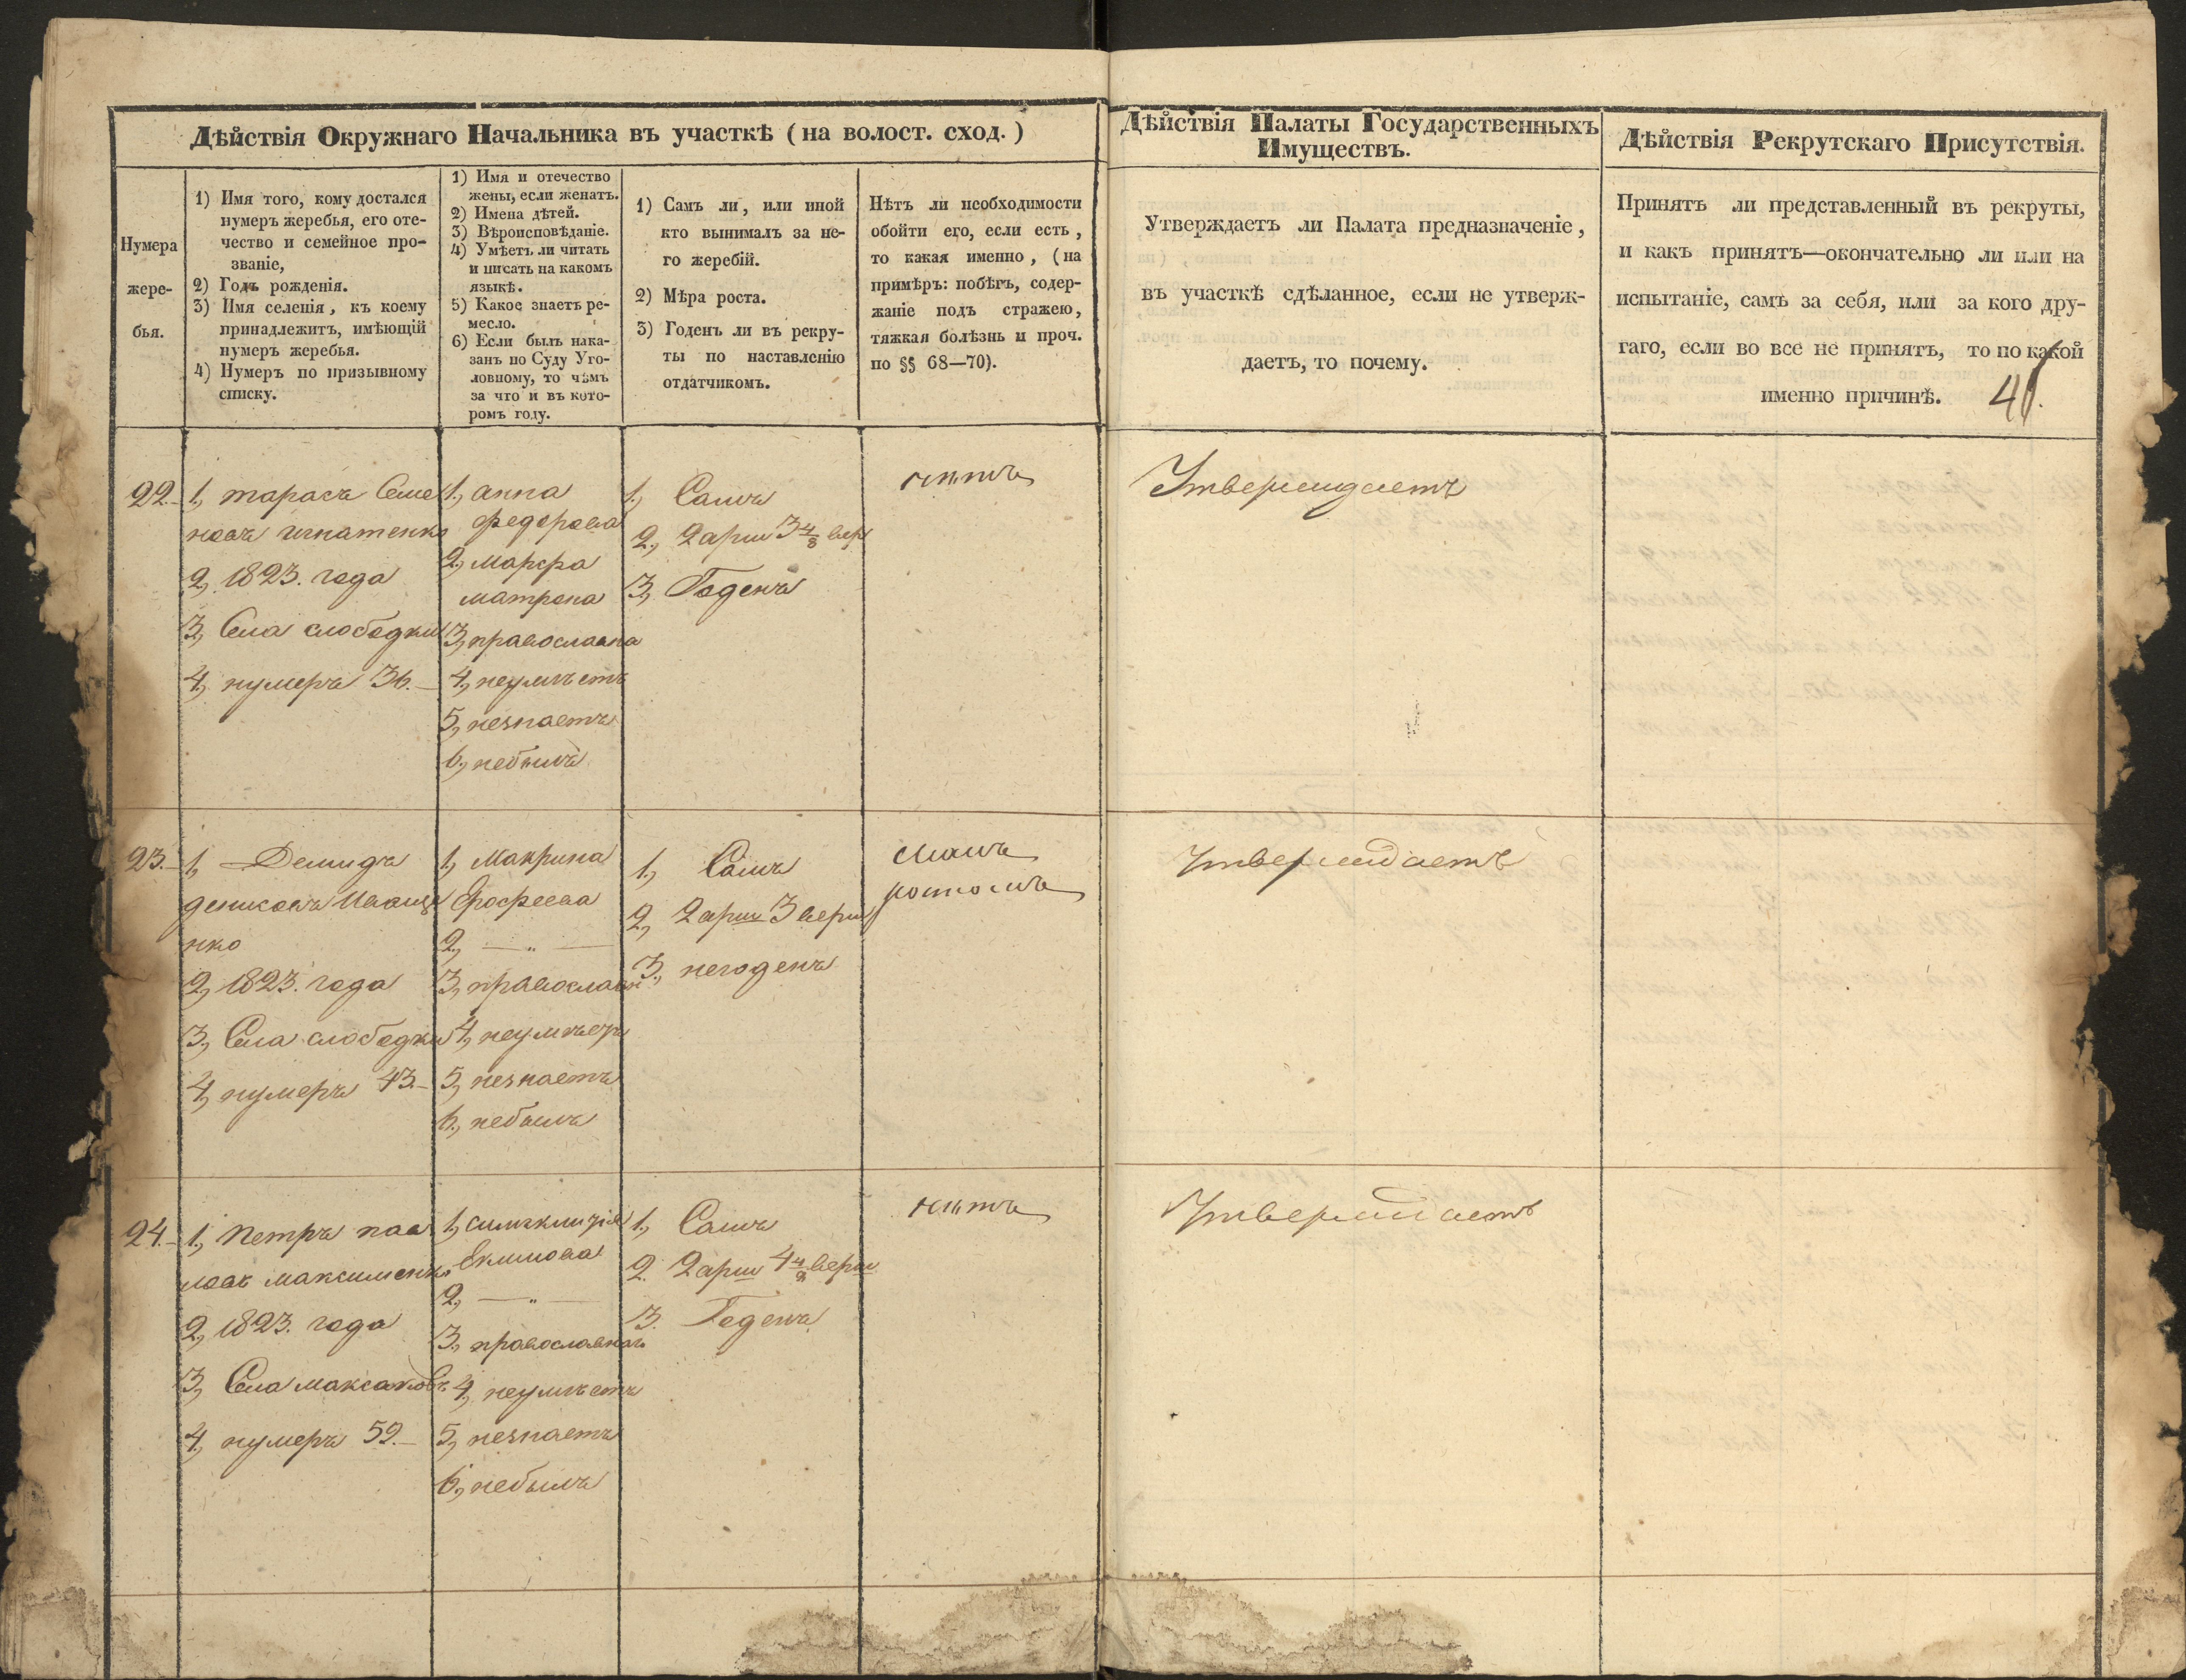 Дѣйствія Окружнаго Начальника въ участкѣ (на волост. сход.)
Нумера
жере-
бья.
1) Имя того, кому достался
нумеръ жеребья, его оте-
чество и семейное про-
званіе,
2) Годъ рожденія.
3) Имя селенія, къ коему
принадлежитъ, имѣющій
нумеръ жеребья.
4) Нумеръ по призывному
списку.
1) Имя и отечество
жены, если женатъ.
2) Имена дѣтей.
3) Вѣроисповѣданіе.
4) Умѣетъ ли читать
и писать на какомъ
языкѣ.
5) Какое знаетъ ре-
месло.
6) Если былъ нака-
занъ по Суду Уго-
ловному, то чѣмъ
за что и въ кото-
ромъ году.
1) Самъ ли, или иной
кто вынималъ за не-
го жеребій.
2) Мѣра роста.
3) Годенъ ли въ рекру-
ты по наставленію
отдатчикомъ.
Нѣтъ ли необходимости
обойти его, если есть,
то какая именно, (на
примѣръ: побѣгъ, содер-
жаніе подъ стражею,
тяжкая болѣзнь и проч.
по §§ 68—70).
Дѣйствія Палаты Государственныхъ
Имуществъ.
Утверждаетъ ли Палата предназначеніе,
въ участкѣ сдѣланное, если не утверж-
даетъ, то почему.
Дѣйствія Рекрутскаго Присутствія.
Принятъ ли представленный въ рекруты,
и какъ принятъ—окончательно ли или на
испытаніе, самъ за себя, или за кого дру-
гаго, если во все не принятъ, то по какой
именно причинѣ.
41.
22.
1, тарасъ Семе
новъ игнатенко
2, 1823. года
3, Села слободки
4, нумеръ 36.
1, анна
федорова
2, марфа
матрона
3, православна
4, неумѣетъ
5, незнаетъ
6, небылъ
1, Самъ
2, 2 арш 3 4/8 вер
3, Годенъ
нѣтъ
Утверждаетъ
23.
1, Демидъ
денисовъ Иваще
нко
2, 1823. года
3, Села слободки
4, нумеръ 43.
1, Макрина
Ерофеева
2, — „ —
3, православн
4, неумѣетъ
5, незнаетъ
6, небылъ
1, Самъ
2, 2 арш 3 верш
3, негоденъ
малъ
ростомъ
Утверждаетъ
24.
1, Петръ пав
ловъ максименко
2, 1823. года
3, Села максаковъ
4, нумеръ 59.
Екимова
2, — „ —
3, православнаг
4, неумѣетъ
5, незнаетъ
6, небылъ
1, Самъ
2. 2 арш 4 4/8 верш
3. Годенъ
нѣтъ
Утверждаетъ